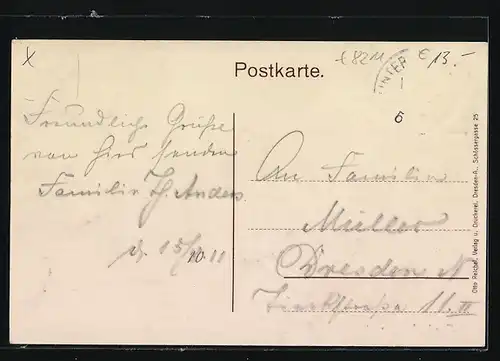 x
€ 13.-
Postkarte.
6
Freundliche Grüße
von hier senden
Familie H. Anders
d. 15/10 11
An Familie
Müller
Dresden N
11 II
Otto Reichel, Verlag u. Druckerei, Dresden-A., Schössergasse 25